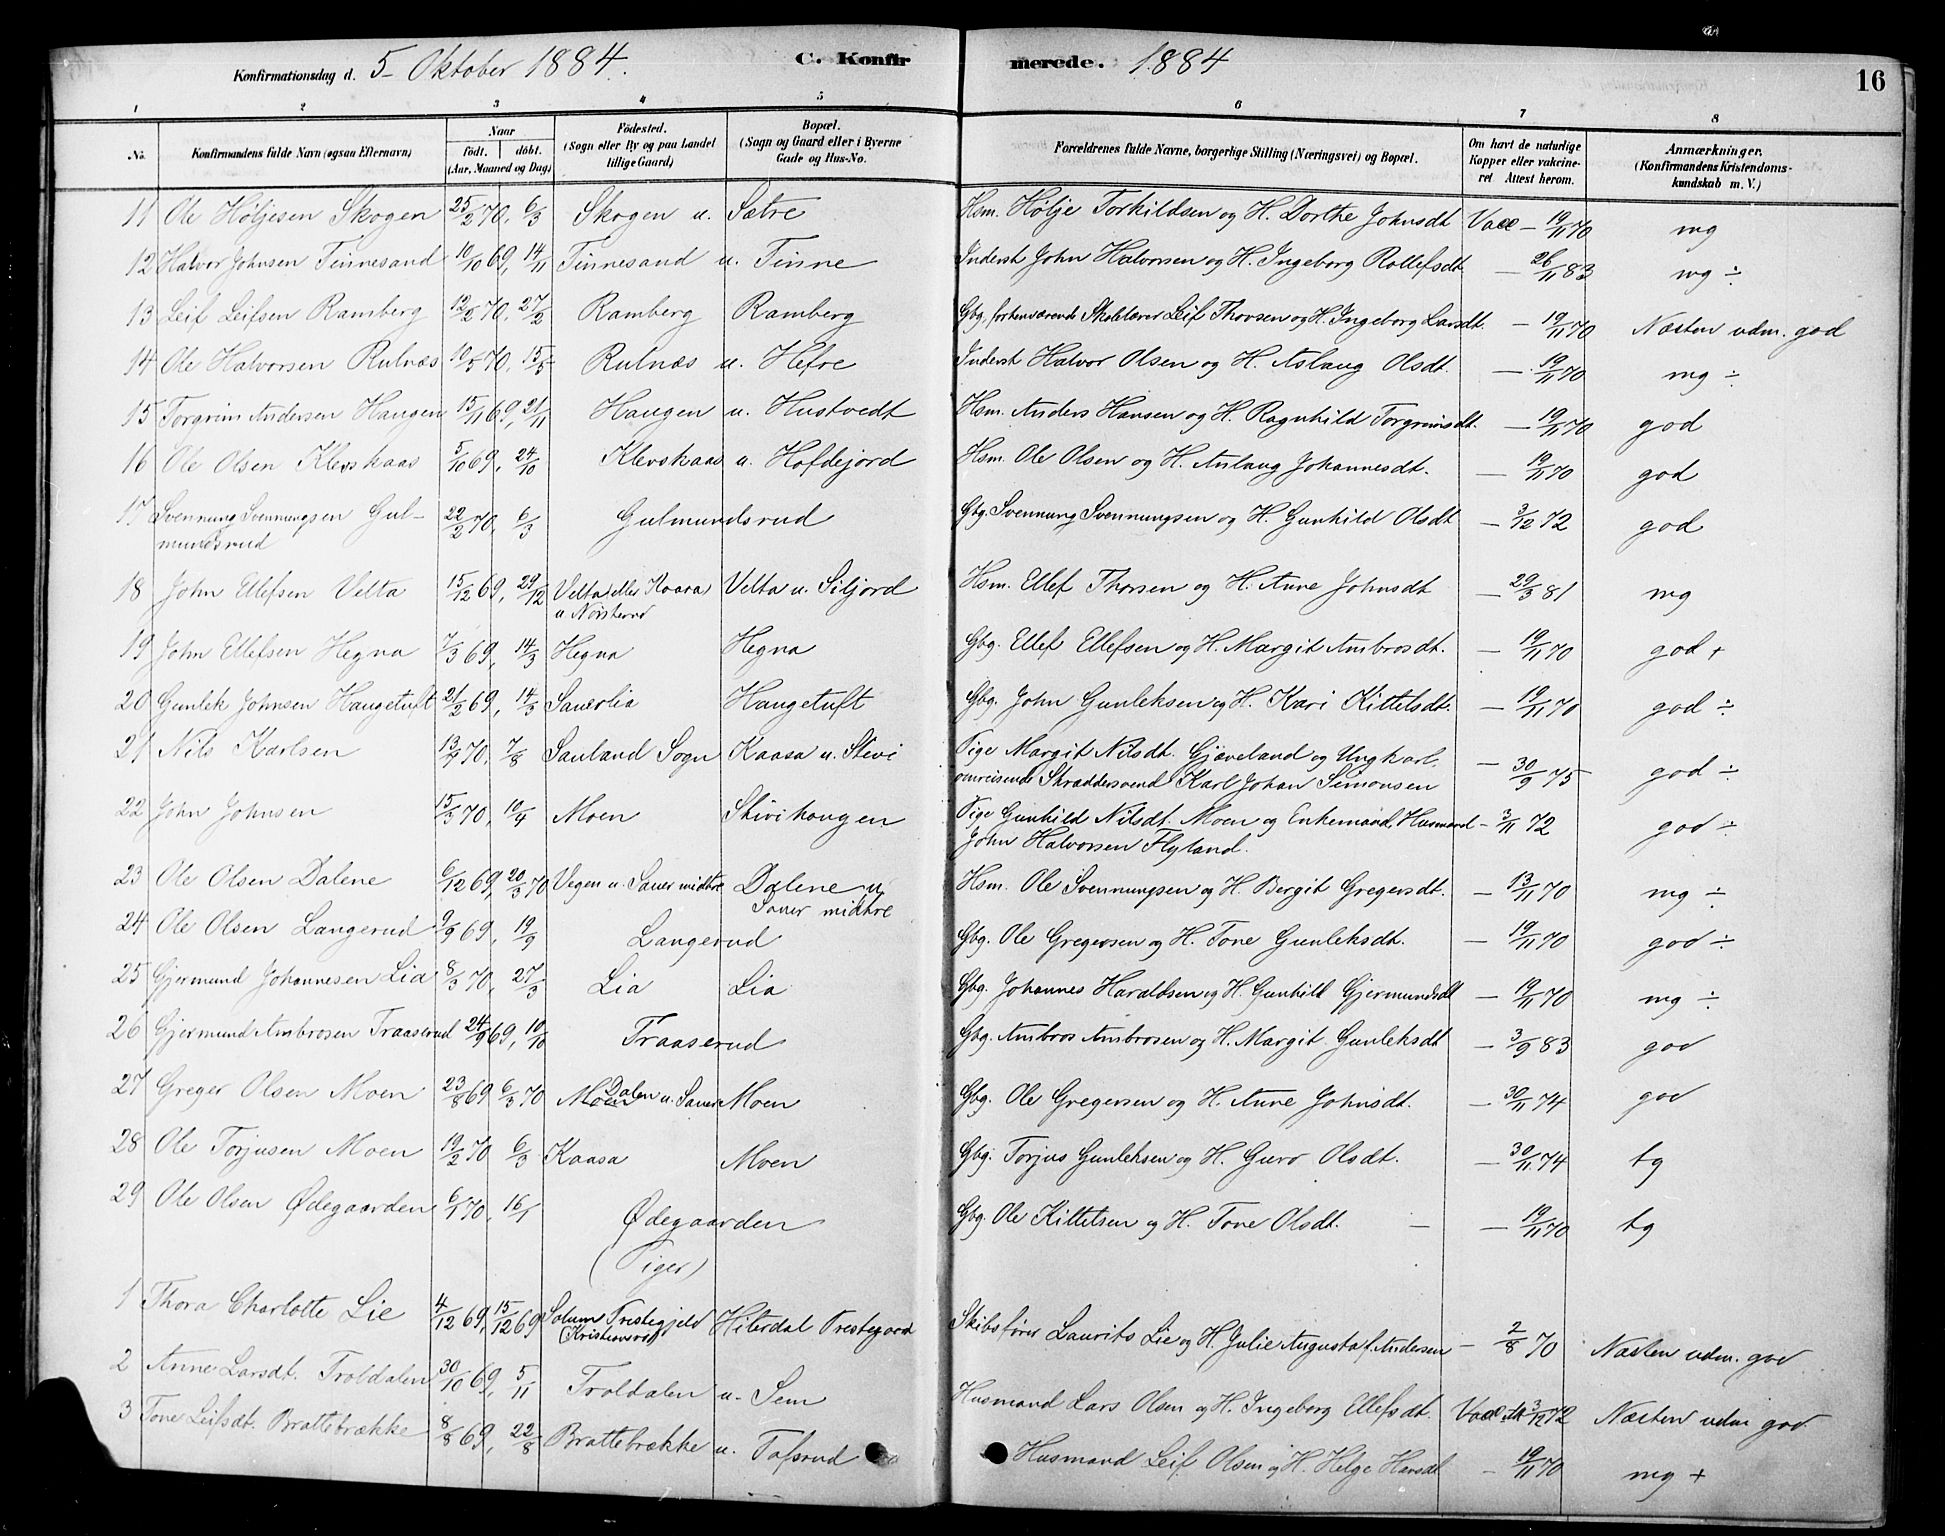 Konfirmationsdag d. 5 Oktober 1884. C. Konfirmerede. 1884 16
1 2 3 4 5 6 7 8
No. Konfirmandens fulde Navn (ogsaa Efternavn) Naar født. døbt. (Aar, Maaned og Dag) Fødested. (Sogn eller By og paa Landet tillige Gaard) Bopæl. (Sogn og Gaard eller i Byerne Gade og Hus-No. Forældrenes fulde Navne, borgerlige Stilling (Næringsvei) og Bopæl. Om havt de naturlige Kopper eller vakcineret Attest herom. Anmærkninger. (Konfirmandens Kristendomskundskab m. V.)
11 Ole Høljesen Skogen 25/2 70, 6/3 Skogen u. Sætre Hsm. Hølje Torkildsen og H. Dorthe Johnsdt Vacc – 19/11 70 mg
12 Halvor Johnsen Tinnesand 10/10 69, 14/11 Tinnesand u. Tinne Inderst John Halvorsen og H. Ingeborg Rollefsdt – 26/11 83 mg ÷
13 Leif Leifsen Ramberg 12/2 70, 27/2 Ramberg Ramberg Gbg. forhenværende Skolelærer Leif Thovsen og H. Ingeborg Larsdt. – 19/11 70 Næsten udm. god
14 Ole Halvorsen Rulnæs 10/5 70, 15/5 Rulnæs u. Hefre Inderst Halvor Olsen og H. Aslaug Olsdt. – 19/11 70 mg ÷
15 Torgrim Andersen Haugen 15/11 69, 21/11 Haugen u. Hustvedt Hsm. Anders Hansen og H. Ragnhild Torgrimsdt. – 19/11 70 god
16 Ole Olsen Klevskaas 5/10 69, 24/10 Klevskaas u. Hofdejord Hsm. Ole Olsen og H. Aslaug Johannesdt. – 19/11 70 god
17 Svennung Svennungsen Gul-
mundsrud 22/2 70, 6/3 Gulmundsrud Gbg. Svennung Svennungsen og H. Gunhild Olsdt – 3/12 72 god
18 John Ellefsen Velta 15/12 69, 29/12 Velta eller Kaasa Velta u. Siljord Hsm. Ellef Thorsen og H. Anne Johnsdt – 29/3 81 mg
19 John Ellefsen Hegna 7/3 69, 14/3 Hegna Hegna Gbg. Ellef Ellefsen og H. Margit Ambrosdt. – 19/11 70 god +
20 Gunlek Johnsen Haugetuft 21/2 69, 14/3 Sauerlia Haugetuft Gbg. John Gunleksen og H. Kari Kittelsdt. – 19/11 70 god ÷
21 Nils Karlsen 13/7 70, 7/8 Sauland Sogn Kaasa u. Stivi Pige Margit Nilsdt. Gjøveland og Ungkarl,
omreisende Skræddersvend Karl Johan Simonsen – 30/9 75 god ÷
22 John Johnsen 15/3 70, 10/4 Moen Stivihaugen Pige Gunhild Nilsdt. Moen og Enkemand, Husmand – 3/11 72 god ÷
John Halvorsen Flyland.
23 Ole Olsen Dalene 6/12 69, 20/3 70 Vegen u. Sauer midtre Dalene u. Sauer midtre Hsm. Ole Svennungsen og H. Bergit Gregersdt. – 13/11 70 mg ÷
24 Ole Olsen Langerud 9/9 69, 19/9 Langerud Gbg. Ole Gregersen og H. Tone Gunleksdt. – 19/11 70 god ÷
25 Gjermund Johannesen Lia 8/3 70, 27/3 Lia Lia Gbg. Johannes Haraldsen og H. Gunhild Gjermundsdt – 19/11 70 mg ÷
26 Gjermund Ambrosen Traaserud 24/9 69, 10/10 Traaserud Gbg. Ambros Ambrosen og H. Margit Gunleksdt – 3/9 83 god
27 Greger Olsen Moen 23/8 69 6/3 70 Moen Dalen u. Sauer Moen Gbg. Ole Gregersen og H. Anne Johnsdt. – 30/11 74 god
28 Ole Torjusen Moen 19/2 70 6/3 Kaasa Moen Gbg. Torjus Gunleksen og H. Guro Olsdt. – 30/11 74 tg
29 Ole Olsen Ødegaarden 6/1 70, 16/1 Ødegaarden Gbg. Ole Kittelsen og H. Tone Olsdt. – – 19/11 70 tg
(Piger)
1 Thora Charlotte Lie 4/12 69, 15/12 69 Solum Prestegjeld Hiterdal Prestegaard Skibsfører Laurits Lie og H. Julie Augusta f. Andersen – 2/8 70 Næsten udm. god
2 Anne Larsdt. Troldalen 30/10 69, 5/11 Troldalen u. Sem Husmand Lars Olsen og H. Ingeborg Ellefsdt. Vacc. 3/12 72 Næsten udm god
3 Tone Leifsdt. Brattebrække 8/8 69, 22/8 Brattebrække u. Tafsrud Husmand Leif Olsen og H. Helge Hansdt – 19/11 70 mg +